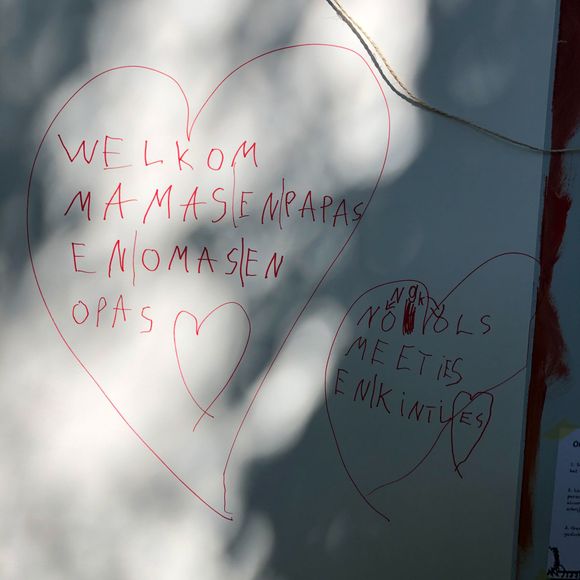 WELKOM
MAMAS|EN|PAPAS
EN|OMAS|EN
OPAS
MEETIES
EN|KINTIES